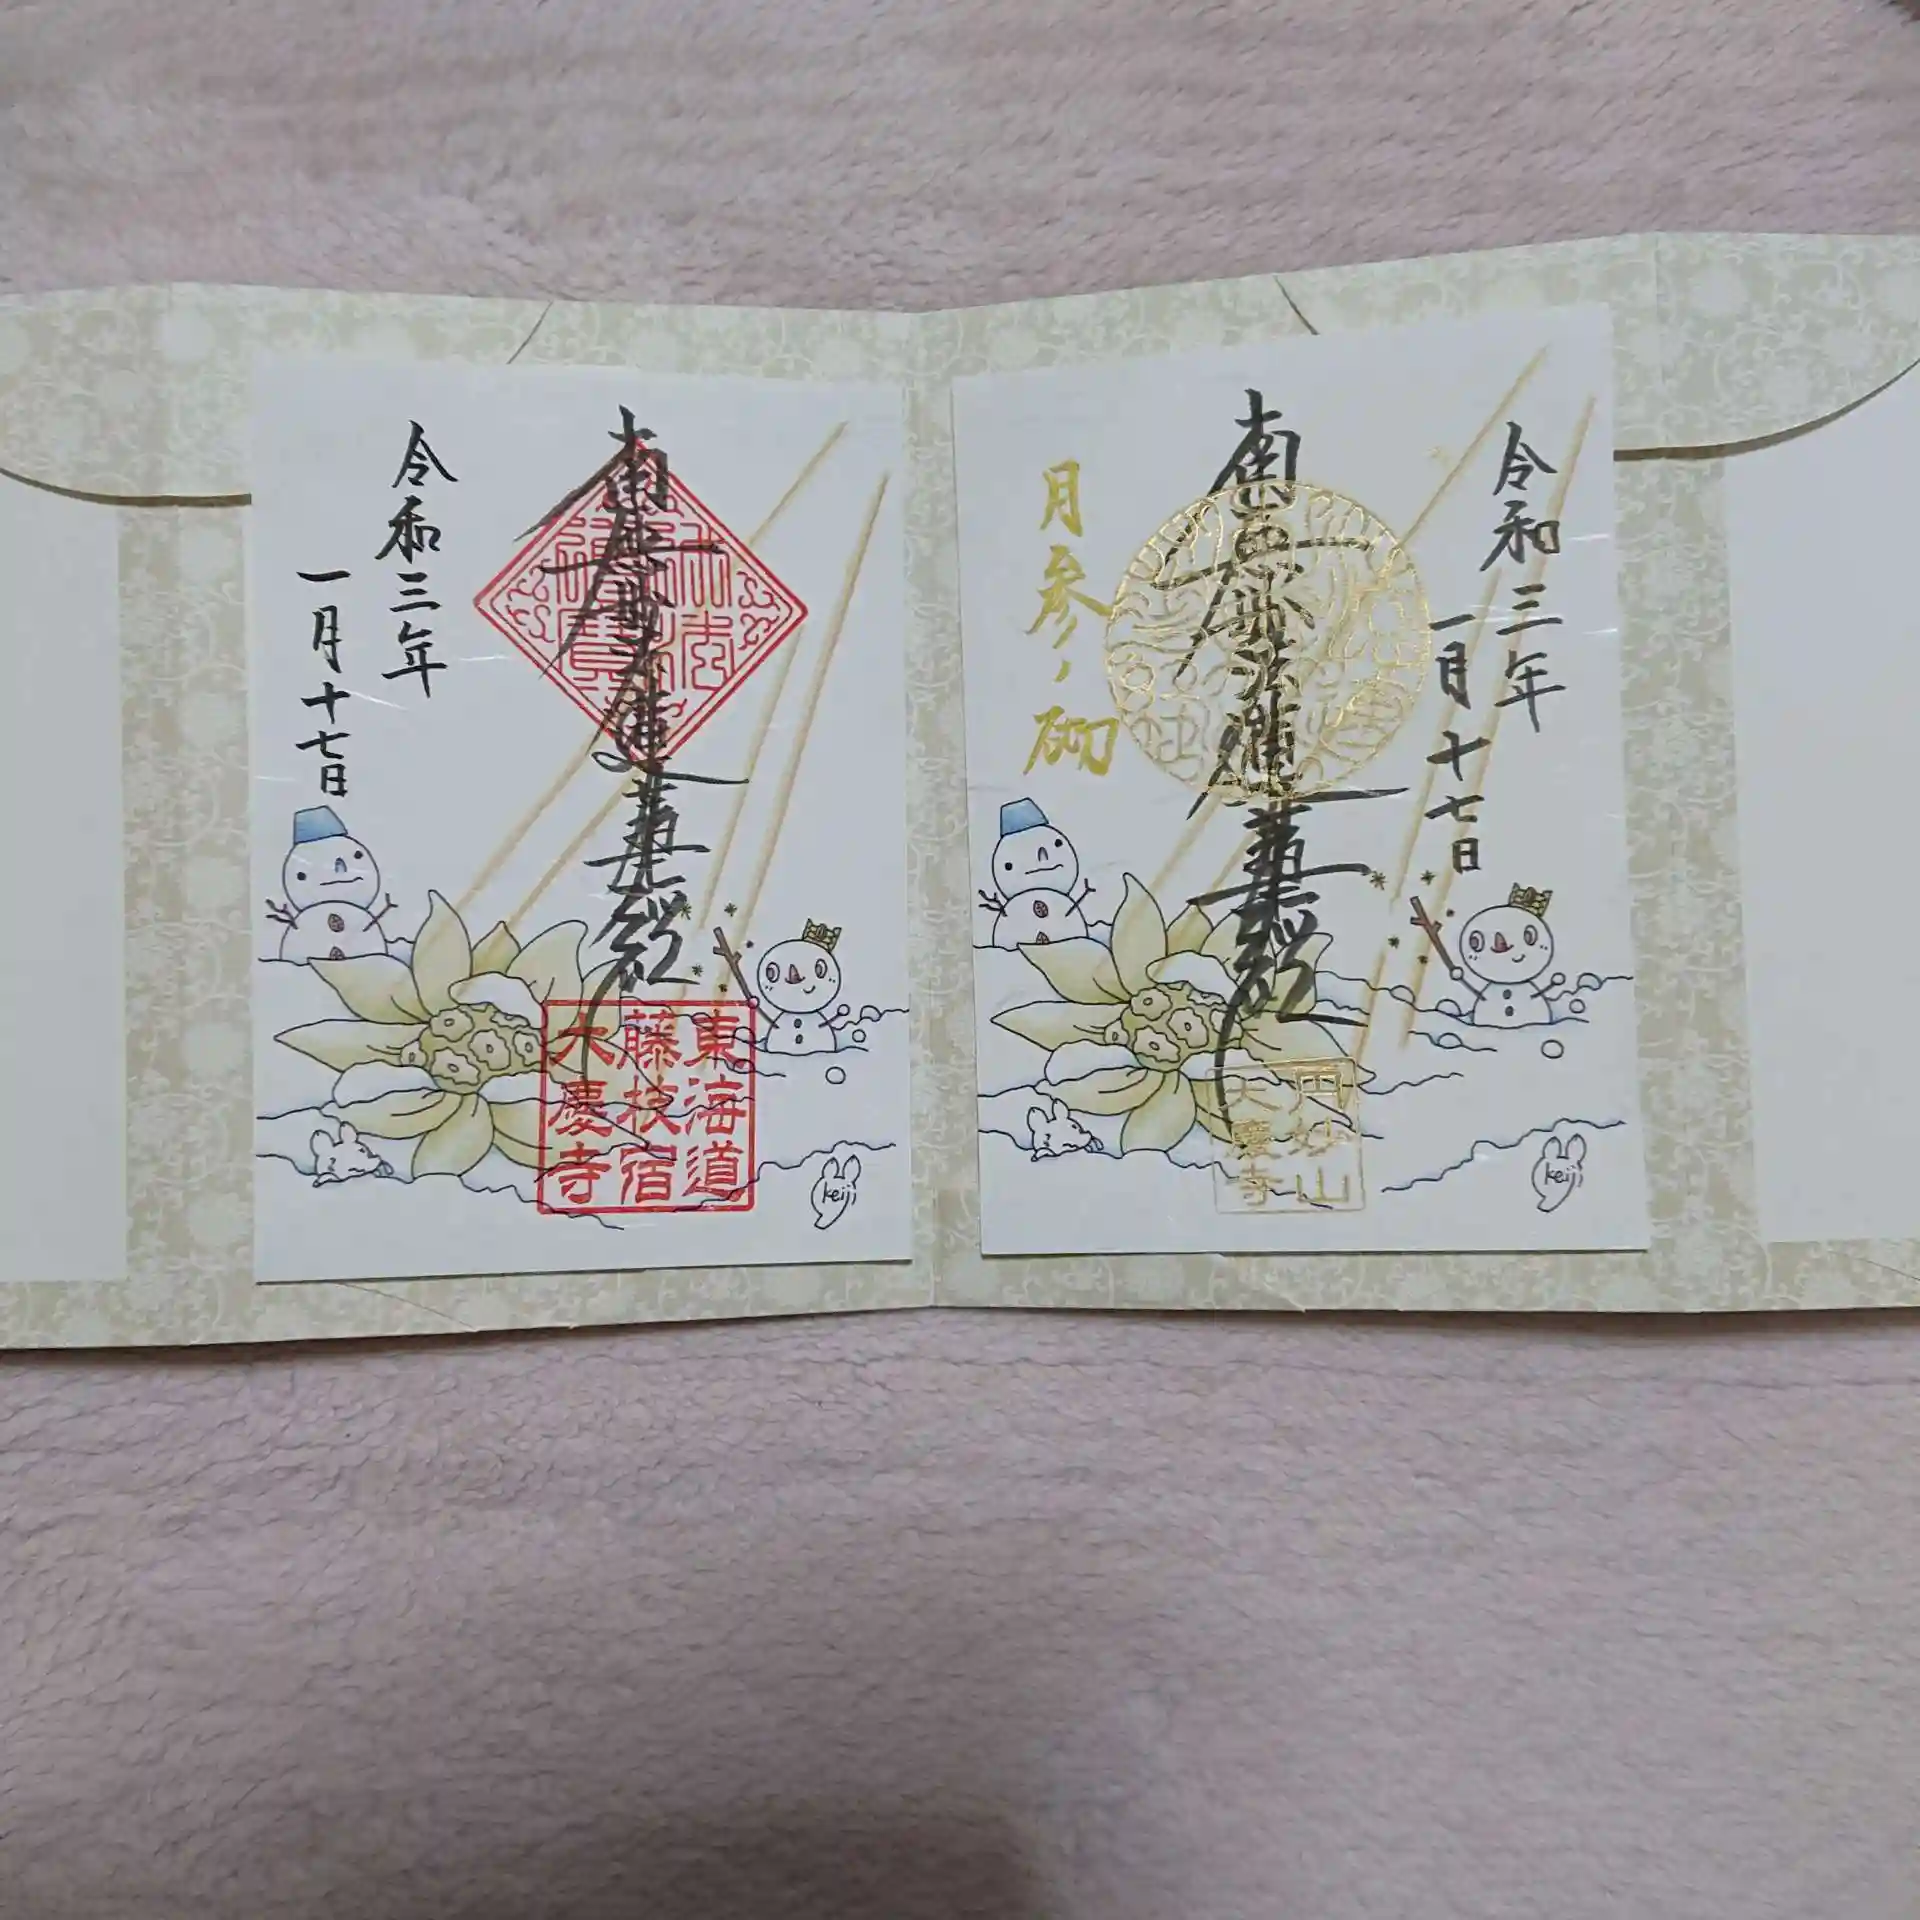 令和三年
一月十七日
南無妙法蓮華経
東海道
藤枝宿
大慶寺
keiji
令和三年
一月十七日
南無妙法蓮華経
月参ノ砌
円妙山
大慶寺
keiji